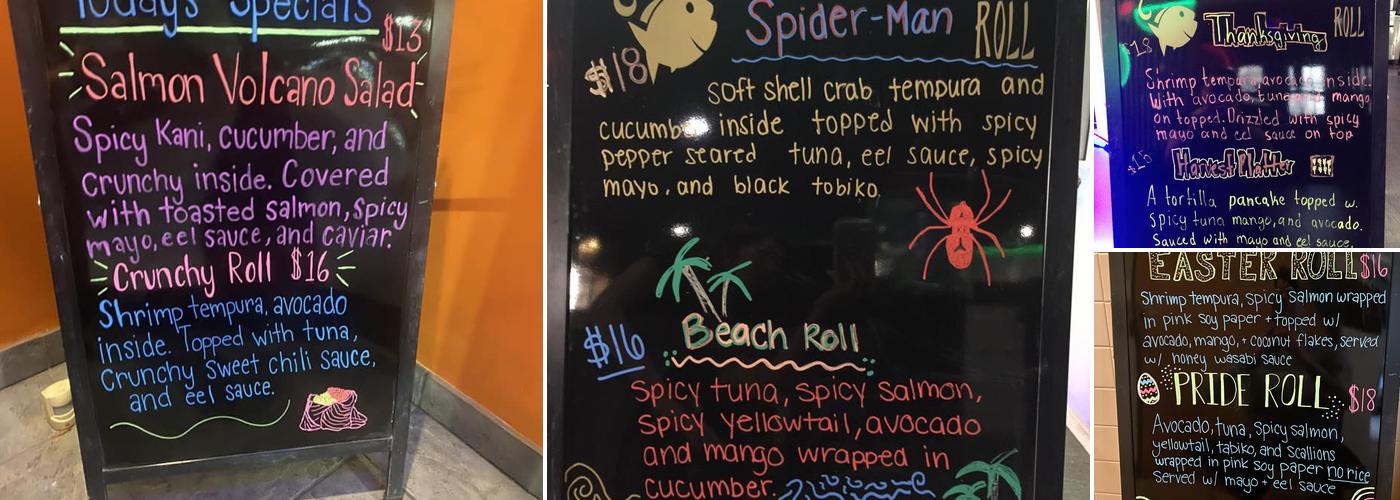 Today's Specials
$13
Salmon Volcano Salad
Spicy Kani, cucumber, and
crunchy inside. Covered
with toasted salmon, spicy
mayo, eel sauce, and caviar.
Crunchy Roll $16
Shrimp tempura, avocado
inside. Topped with tuna,
crunchy sweet chili sauce,
and eel sauce.
Spider-Man ROLL
$18
soft shell crab tempura and
cucumber inside topped with spicy
pepper seared tuna, eel sauce, spicy
mayo, and black tobiko.
Beach Roll
$16
Spicy tuna, spicy salmon,
spicy yellowtail, avocado
and mango wrapped in
cucumber.
Thanksgiving ROLL
$18
Shrimp tempura, avocado inside.
With avocado, tuna and mango
on topped. Drizzled with spicy
mayo and eel sauce on top
$15
Harvest Platter
A tortilla pancake topped w.
spicy tuna mango, and avocado.
Sauced with mayo and eel sauce,
EASTER ROLL $16
Shrimp tempura, spicy salmon wrapped
in pink soy paper + topped w/
avocado, mango, + coconut flakes, served
w/ honey wasabi sauce
PRIDE ROLL $18
Avocado, tuna, spicy salmon,
yellowtail, tabiko, and scallions
wrapped in pink soy paper no rice
served w/ mayo + eel sauce